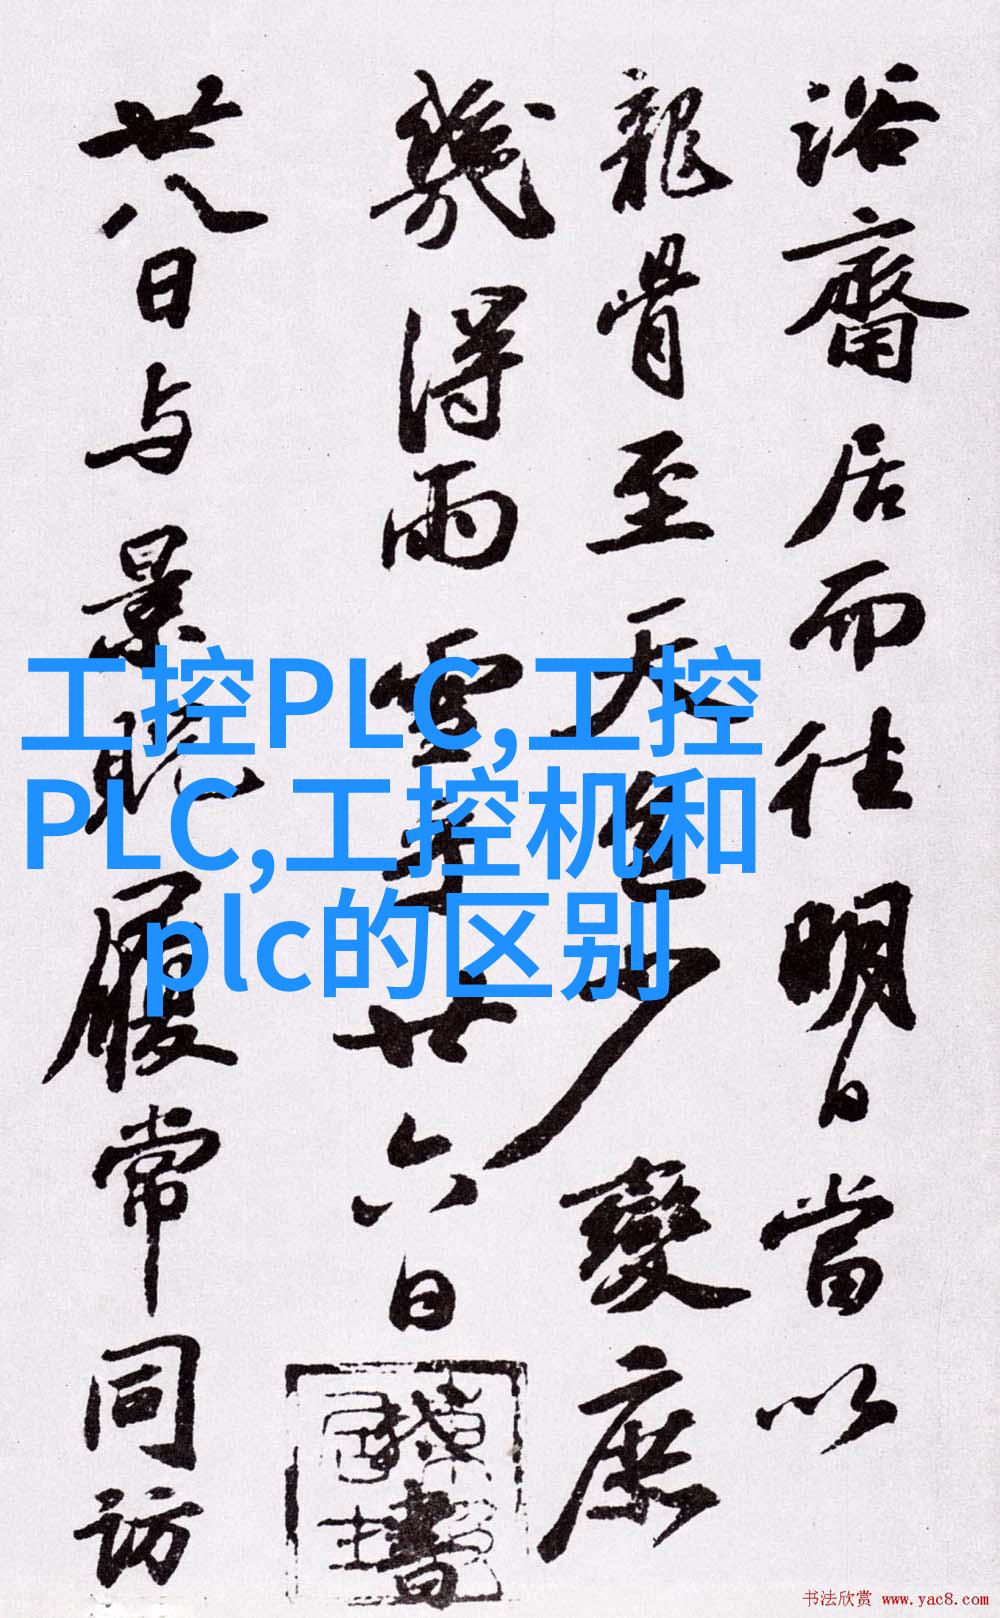 浴齋居而往明日當以
龍骨至天邑少變庶
幾得雨雪耳廿六日書
廿八日与景貺履常同訪
工控PLC,工控
PLC,工控机和
plc的区别
书法欣赏 www.yac8.com